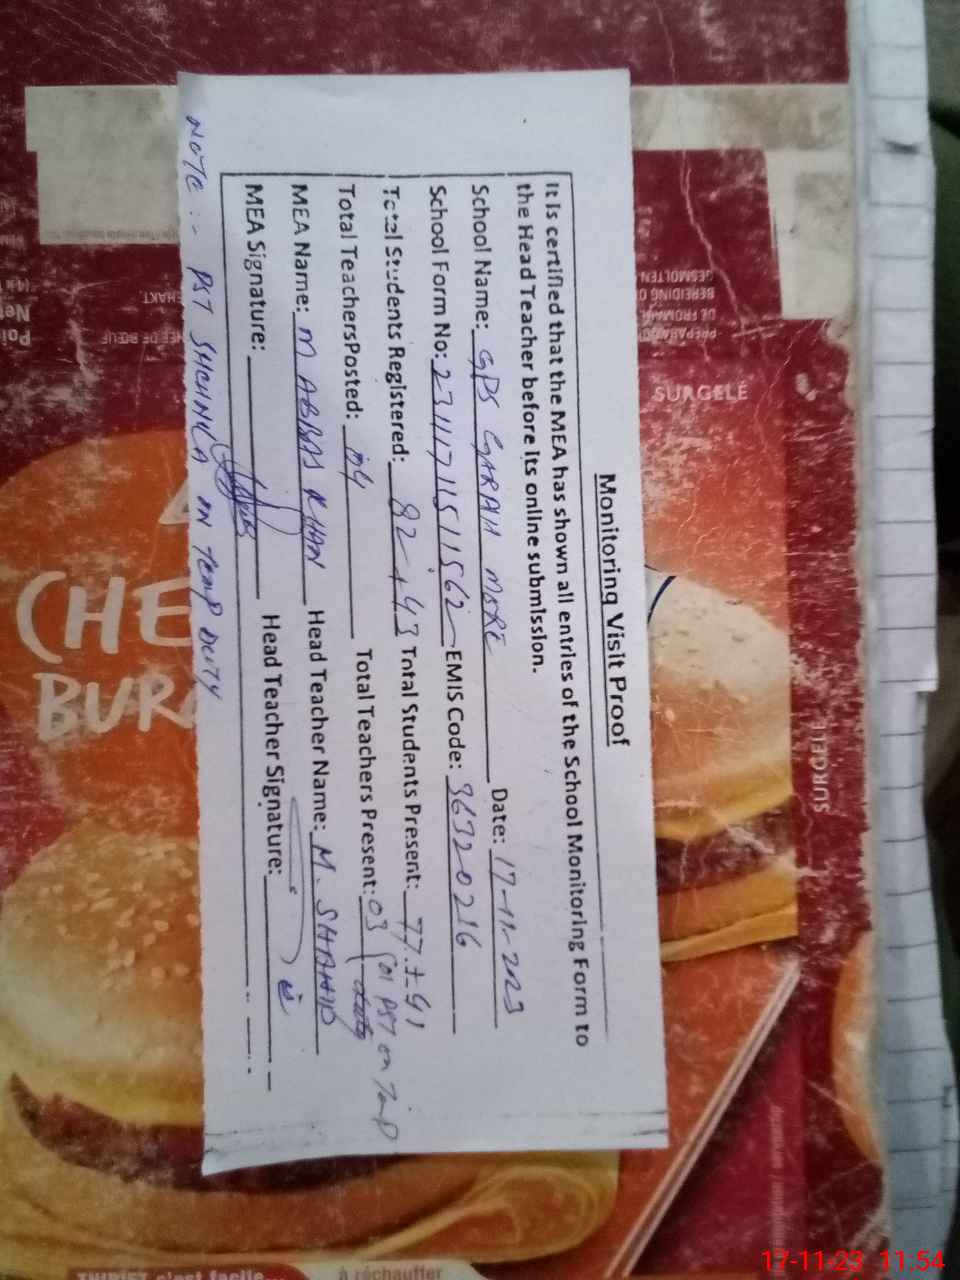 Monitoring Visit Proof
It is certified that the MEA has shown all entries of the School Monitoring Form to
the Head Teacher before its online submission.
School Name: GPS GARAH MORE Date: 17-11-2023
School Form No: 23111711511562 EMIS Code: 36320216
Total Students Registered: 82+43 Total Students Present: 77+41
Total Teachers Posted: 04 Total Teachers Present: 03 (01 PST on Temp
duty
MEA Name: M ABBAS KHAN Head Teacher Name: M. SHAHID
MEA Signature: Head Teacher Signature:
NOTE :- PST ON TEMP DEUTY
SURGELÉ
SURGELÉ
CHE
BUR
GESMOLTEN
BEREIDING
DE FROMAGE
EHAKT
ÉE DE BŒUF
Poi
Net
c'est facile...
à réchauffer
17-11-23 11:54